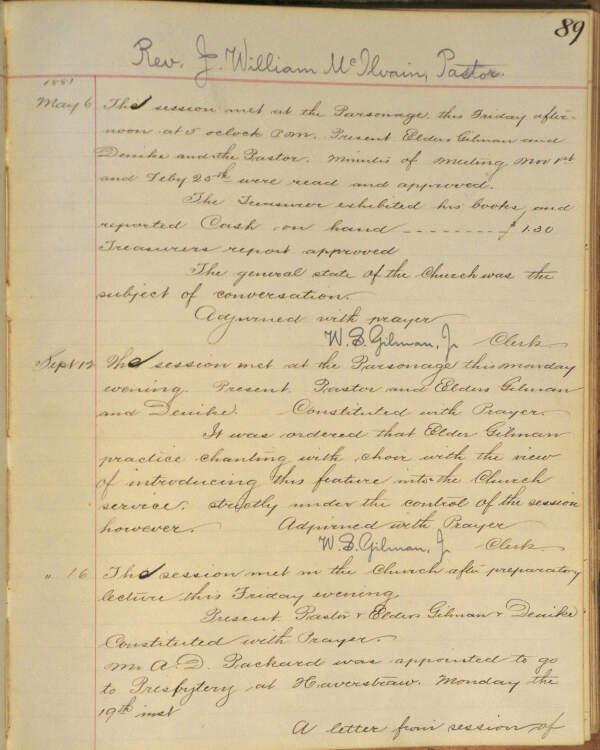 89
Rev. J. William McIlvain, Pastor.
1881
May 6 The session met at the Parsonage, this Friday after-
noon at 5 oclock P.M. Present Elders Gilman and
Denike and the Pastor. Minutes of Meeting Nov 1st
and Feby 25th were read and approved.
The Treasurer exhibited his books, and
reported Cash on hand -------- $1.30
Treasurers report approved
The general state of the Church was the
subject of conversation.
Adjurned with prayer
W. S. Gilman, Jr Clerk
Sept 12 The session met at the Parsonage this monday
evening. Present Pastor and Elders Gilman
and Denike. Constituted with Prayer.
It was ordered that Elder Gilman
practice chanting with choir with the view
of introducing this feature into the Church
service, strictly under the control of the session
however. Adjurned with Prayer
W. S. Gilman, Jr Clerk
" 16 The session met in the Church after preparatory
lecture this Friday evening
Present Pastor & Elders Gilman & Denike
Constituted with Prayer.
Mr A. D. Packard was appointed to go
to Presbytery at Haverstraw. Monday the
19th inst
A letter from session of